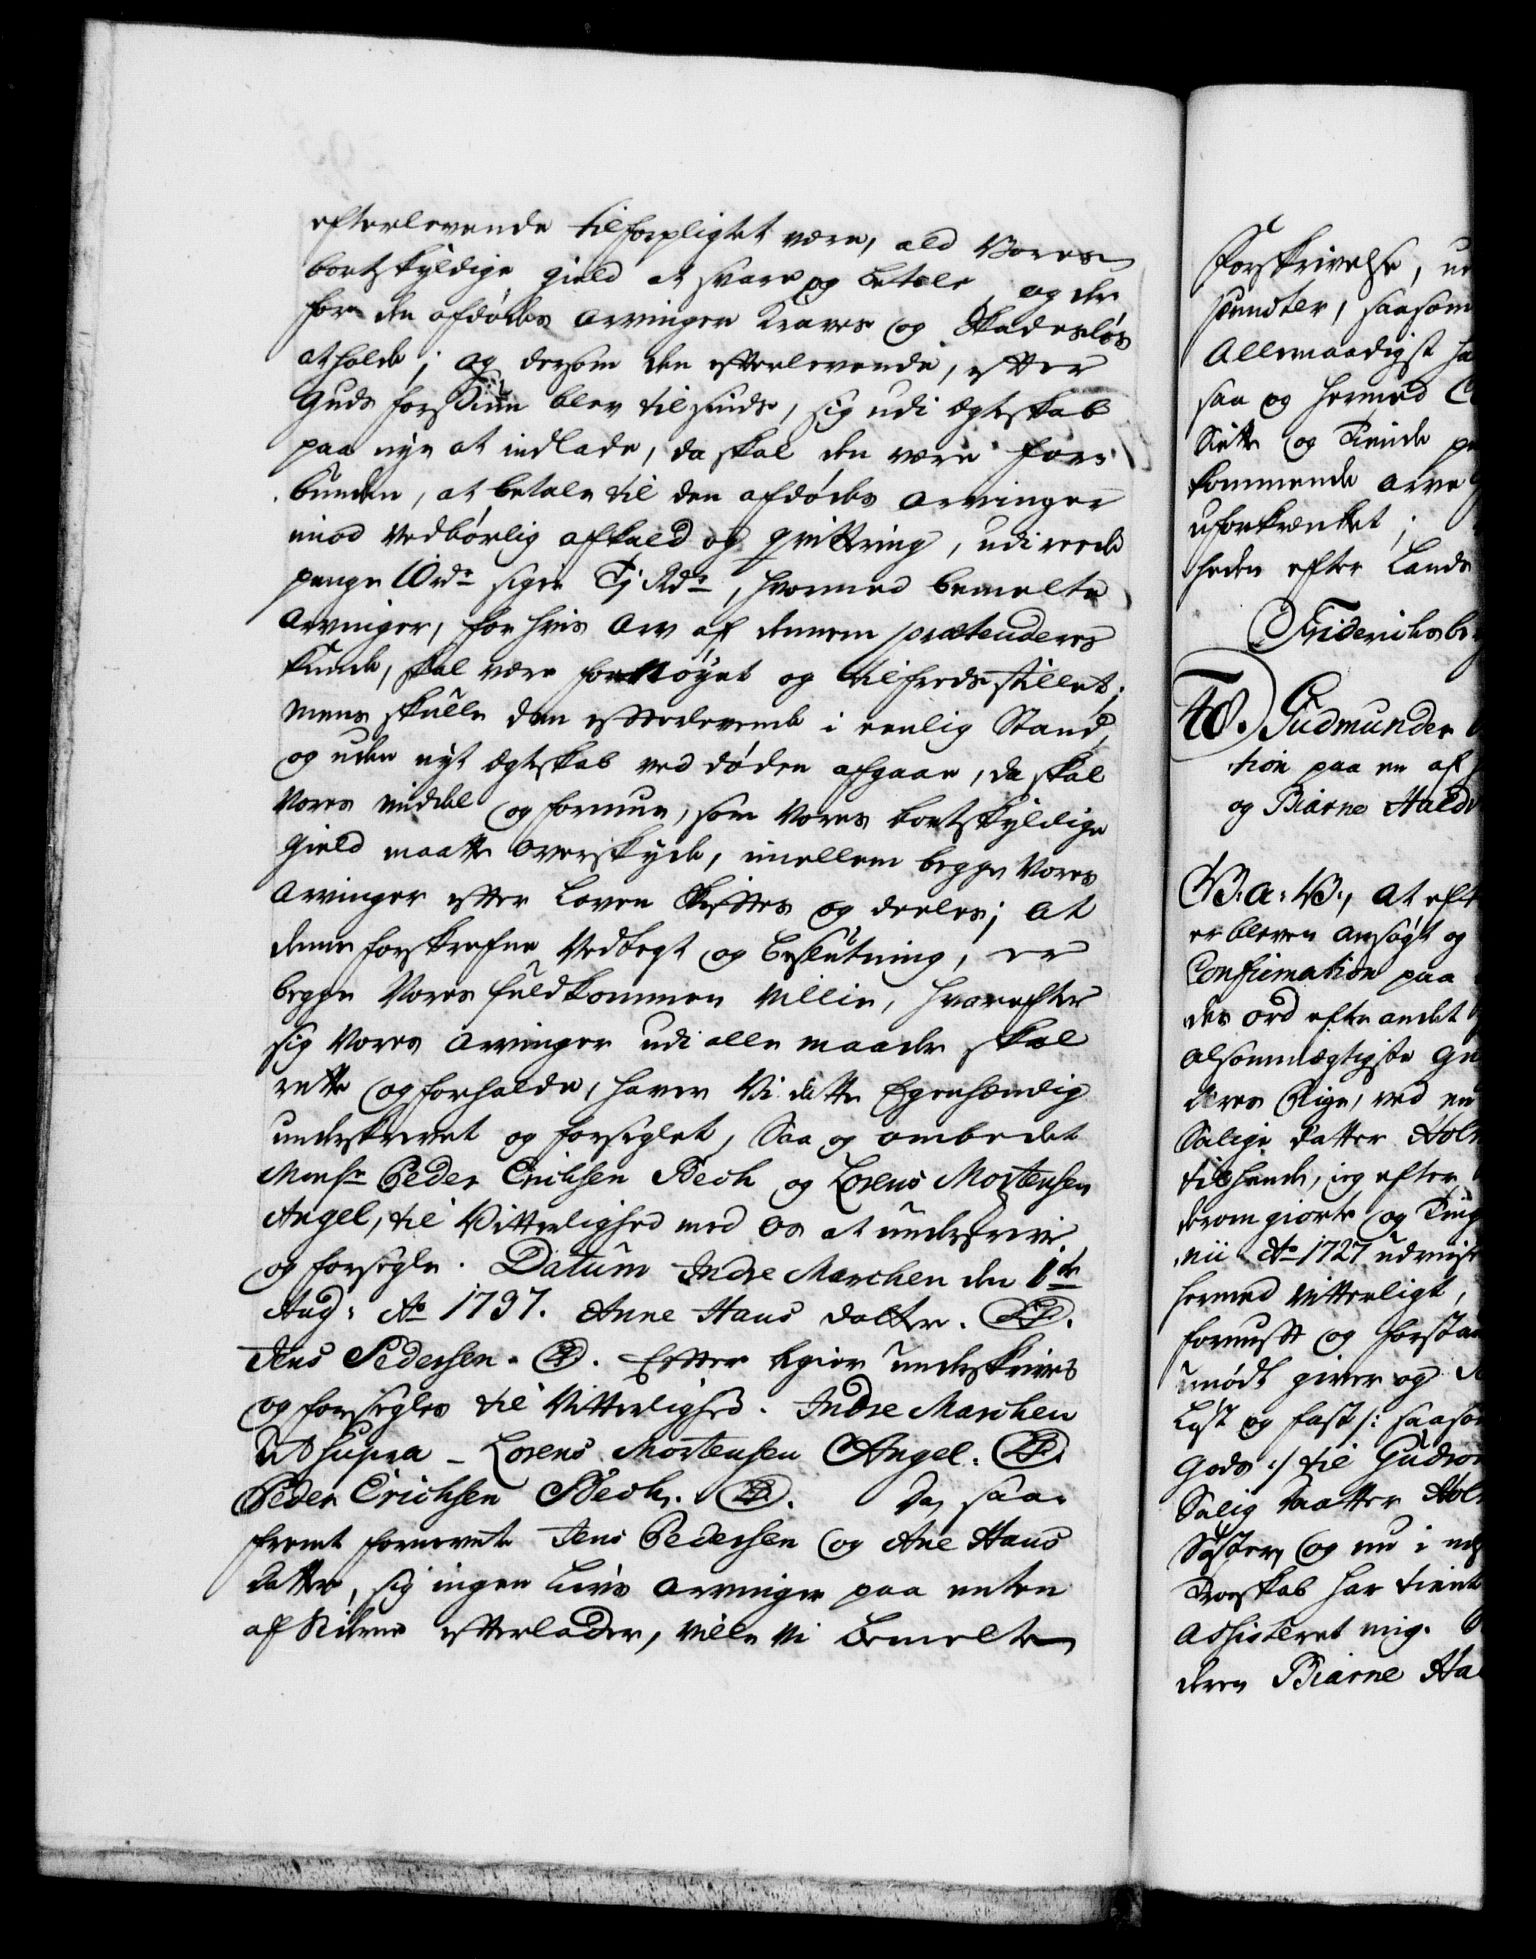 efterlevende tilforpligtet være, ald Vores
bortskyldige gield at svare og betale, og der
for den afdödes arvinger Kraves og Skadeslös
at holde; og dersom den efterlevende, efter
Guds forsiun blev tilsinds, sig udi ægteskab
paa nye at indlade, da skal den være for-
bunden, at betale til den afdödes arvinger
imod vedbörlig afkald og qvittering, udi reede
penge 10 rdr siger Tj Rdr, hvormed bemelte
arvinger, for hvis arv af dennem prætenderes
kunde, skal være fornöyet og tilfredsstillet;
mens skulle den efterlevende i eenlig Stand,
og uden nyt ægteskab ved döden afgaae, da skal
Vores middel og formue, som Vores bortskyldige
gield maatte overskyde, imellem begge Vores
arvinger efter Loven skiftes og deeles; at
denne forskrefne Vedtegt og beslutning, er
begge Vores fuldkommen villie, hvorefter
sig Vores arvinger udi alle maader skal
rette og forholde, haver Vi dette Egenhændig
underskrevet og forseglet, saa og ombedet
Monsr Peder Erichsen Bech og Lorens Mortensen
Angel, til Vitterlighed med os at underskrive
og forsegle. Datum Indre Marchen den 1de
Aug: Ao 1737. Anne Hans datter. (LS).
Jens Pedersen. (LS). Efter begier underskrives
og forsegles til Vitterlighed. Indre Marchen
Ut supra - Lorens Mortensen Angel. (LS).
Peder Erichsen Bech. (LS). Da, saa-
fremt fornevnte Jens Pedersen og Ane Hans
datter, sig ingen Livs arvinger paa enten
af Siderne efterlader, ville Vi bemelte
Forskrivelse, u
puncter, saasom
Allernaadigst ha
saa og hermed C
Sætte og Kiende p
kommende arve
uforkrænket;
heden efter Lands
Friderichsbe
48. Gudmunder
tion paa en af
og Biarne Hald
V: a: V:, at eft
er bleven ansögt og
Confirmation paa
des ord efter andet
alsommægtigste Gu
deres Rige, ved en
Salige datter Hol
tilhænde, jeg efter
derom giorte og Ting
nii Ao 1727 udviist
hermed vitterligt,
fornuft og forstan
unödt giver og
List og fast /: saaso
Gods :/ til Gudron
Salig daatter Hol
Söster, og nu i
Troeskab har tient
assisteret mig.
deren Biarne Ha